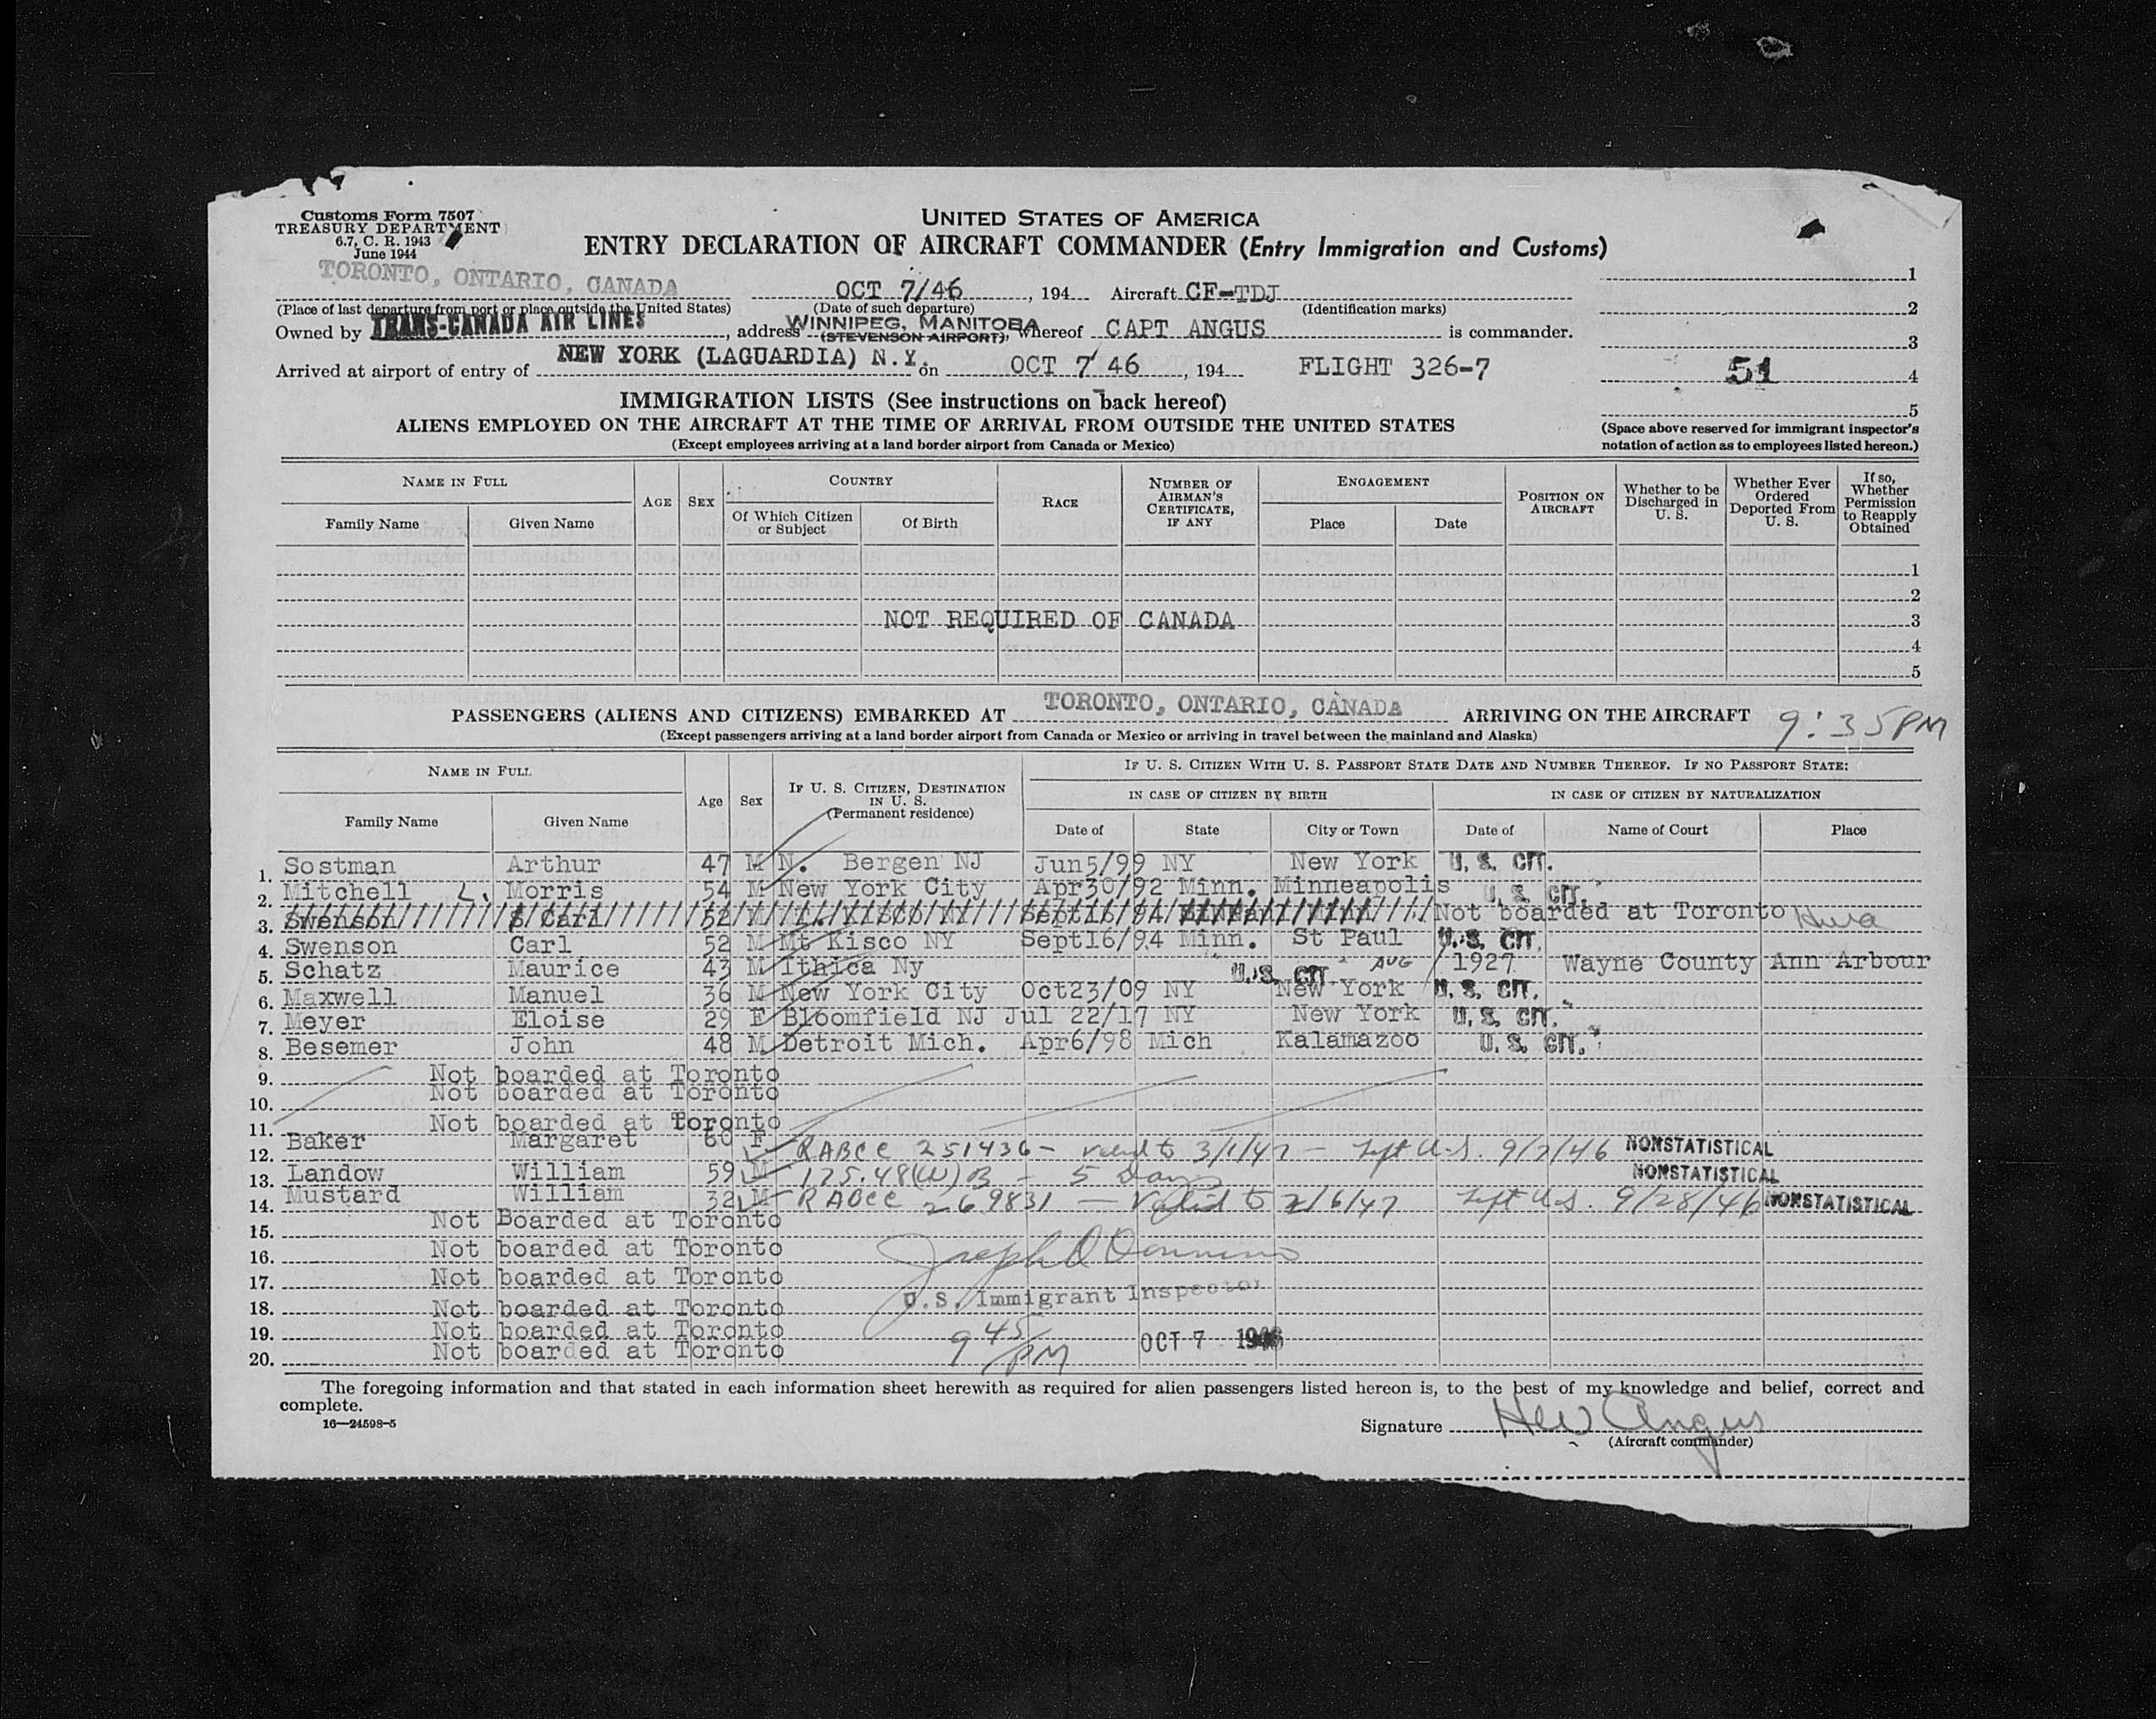 Customs Form 7507
TREASURY DEPARTMENT
6.7, C. R. 1943
June 1944
UNITED STATES OF AMERICA
ENTRY DECLARATION OF AIRCRAFT COMMANDER (Entry Immigration and Customs)
TORONTO, ONTARIO, CANADA OCT 7/46, 194 Aircraft CF-TDJ 1
(Place of last departure from port or place outside the United States) (Date of such departure) (Identification marks) 2
Owned by TRANS-CANADA AIR LINES, address WINNIPEG, MANITOBA (STEVENSON AIRPORT), whereof CAPT ANGUS is commander. 3
Arrived at airport of entry of NEW YORK (LAGUARDIA) N.Y. on OCT 7 46, 194 FLIGHT 326-7 51 4
5
IMMIGRATION LISTS (See instructions on back hereof)
ALIENS EMPLOYED ON THE AIRCRAFT AT THE TIME OF ARRIVAL FROM OUTSIDE THE UNITED STATES
(Except employees arriving at a land border airport from Canada or Mexico)
(Space above reserved for immigrant inspector's
notation of action as to employees listed hereon.)
NAME IN FULL AGE SEX COUNTRY RACE NUMBER OF AIRMAN'S CERTIFICATE, IF ANY ENGAGEMENT POSITION ON AIRCRAFT Whether to be Discharged in U. S. Whether Ever Ordered Deported From U. S. If so, Whether Permission to Reapply Obtained
Family Name Given Name Of Which Citizen or Subject Of Birth Place Date
1
2
NOT REQUIRED OF CANADA 3
4
5
PASSENGERS (ALIENS AND CITIZENS) EMBARKED AT TORONTO, ONTARIO, CANADA ARRIVING ON THE AIRCRAFT 9:35PM
(Except passengers arriving at a land border airport from Canada or Mexico or arriving in travel between the mainland and Alaska)
NAME IN FULL Age Sex IF U. S. CITIZEN, DESTINATION IN U. S. (Permanent residence) IF U. S. CITIZEN WITH U. S. PASSPORT STATE DATE AND NUMBER THEREOF. IF NO PASSPORT STATE:
IN CASE OF CITIZEN BY BIRTH IN CASE OF CITIZEN BY NATURALIZATION
Family Name Given Name Date of State City or Town Date of Name of Court Place
1. Sostman Arthur 47 M N. Bergen NJ Jun5/99 NY New York U. S. CIT.
2. Mitchell L. Morris 54 M New York City Apr30/92 Minn. Minneapolis U. S. CIT.
3. Swenson Carl 52 M Sept16/94 Not boarded at Toronto
4. Swenson Carl 52 M Mt Kisco NY Sept16/94 Minn. St Paul U. S. CIT.
5. Schatz Maurice 43 M Ithica Ny U.S. CIT. AUG / 1927 Wayne County Ann Arbour
6. Maxwell Manuel 36 M New York City Oct23/09 NY New York U. S. CIT.
7. Meyer Eloise 29 F Bloomfield NJ Jul 22/17 NY New York U. S. CIT.
8. Besemer John 48 M Detroit Mich. Apr6/98 Mich Kalamazoo U. S. CIT.
9. Not boarded at Toronto
10. Not boarded at Toronto
11. Not boarded at Toronto
12. Baker Margaret 60 F RABCC 251436 - valid to 3/1/47 - Left U.S. 9/7/46 NONSTATISTICAL
13. Landow William 59 M 175.48(W)B - 5 Days NONSTATISTICAL
14. Mustard William 32 M RABCC 269831 - Valid to 2/6/47 Left U.S. 9/28/46 NONSTATISTICAL
15. Not Boarded at Toronto
16. Not boarded at Toronto
17. Not boarded at Toronto
U.S. Immigrant Inspector
18. Not boarded at Toronto
19. Not boarded at Toronto 9 45 PM OCT 7 1946
20. Not boarded at Toronto
The foregoing information and that stated in each information sheet herewith as required for alien passengers listed hereon is, to the best of my knowledge and belief, correct and
complete.
16—24598-5
Signature Angus
(Aircraft commander)